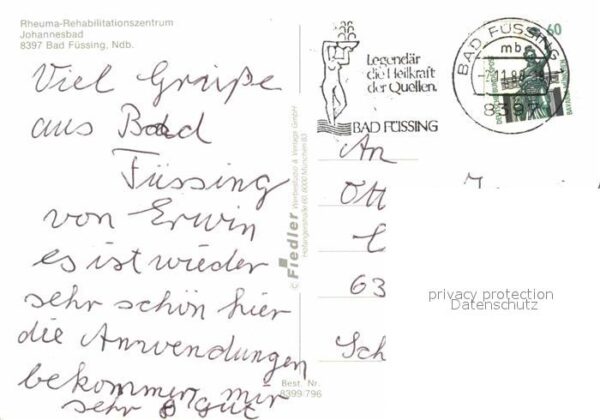 Rheuma-Rehabilitationszentrum
Johannesbad
8397 Bad Füssing, Ndb.
Viel Grüße
aus Bad
Füssing
von Erwin
es ist wieder
sehr schön hier
die Anwendungen
bekommen mir
sehr gut
© Fiedler Werbestudio & Verlags GmbH
8000 München 83
Best. Nr.
8399/796
Legendär
die Heilkraft
der Quellen.
BAD FÜSSING
BAD FÜSSING
mb
8397
60
An
Ott
63
Sch
privacy protection
Datenschutz